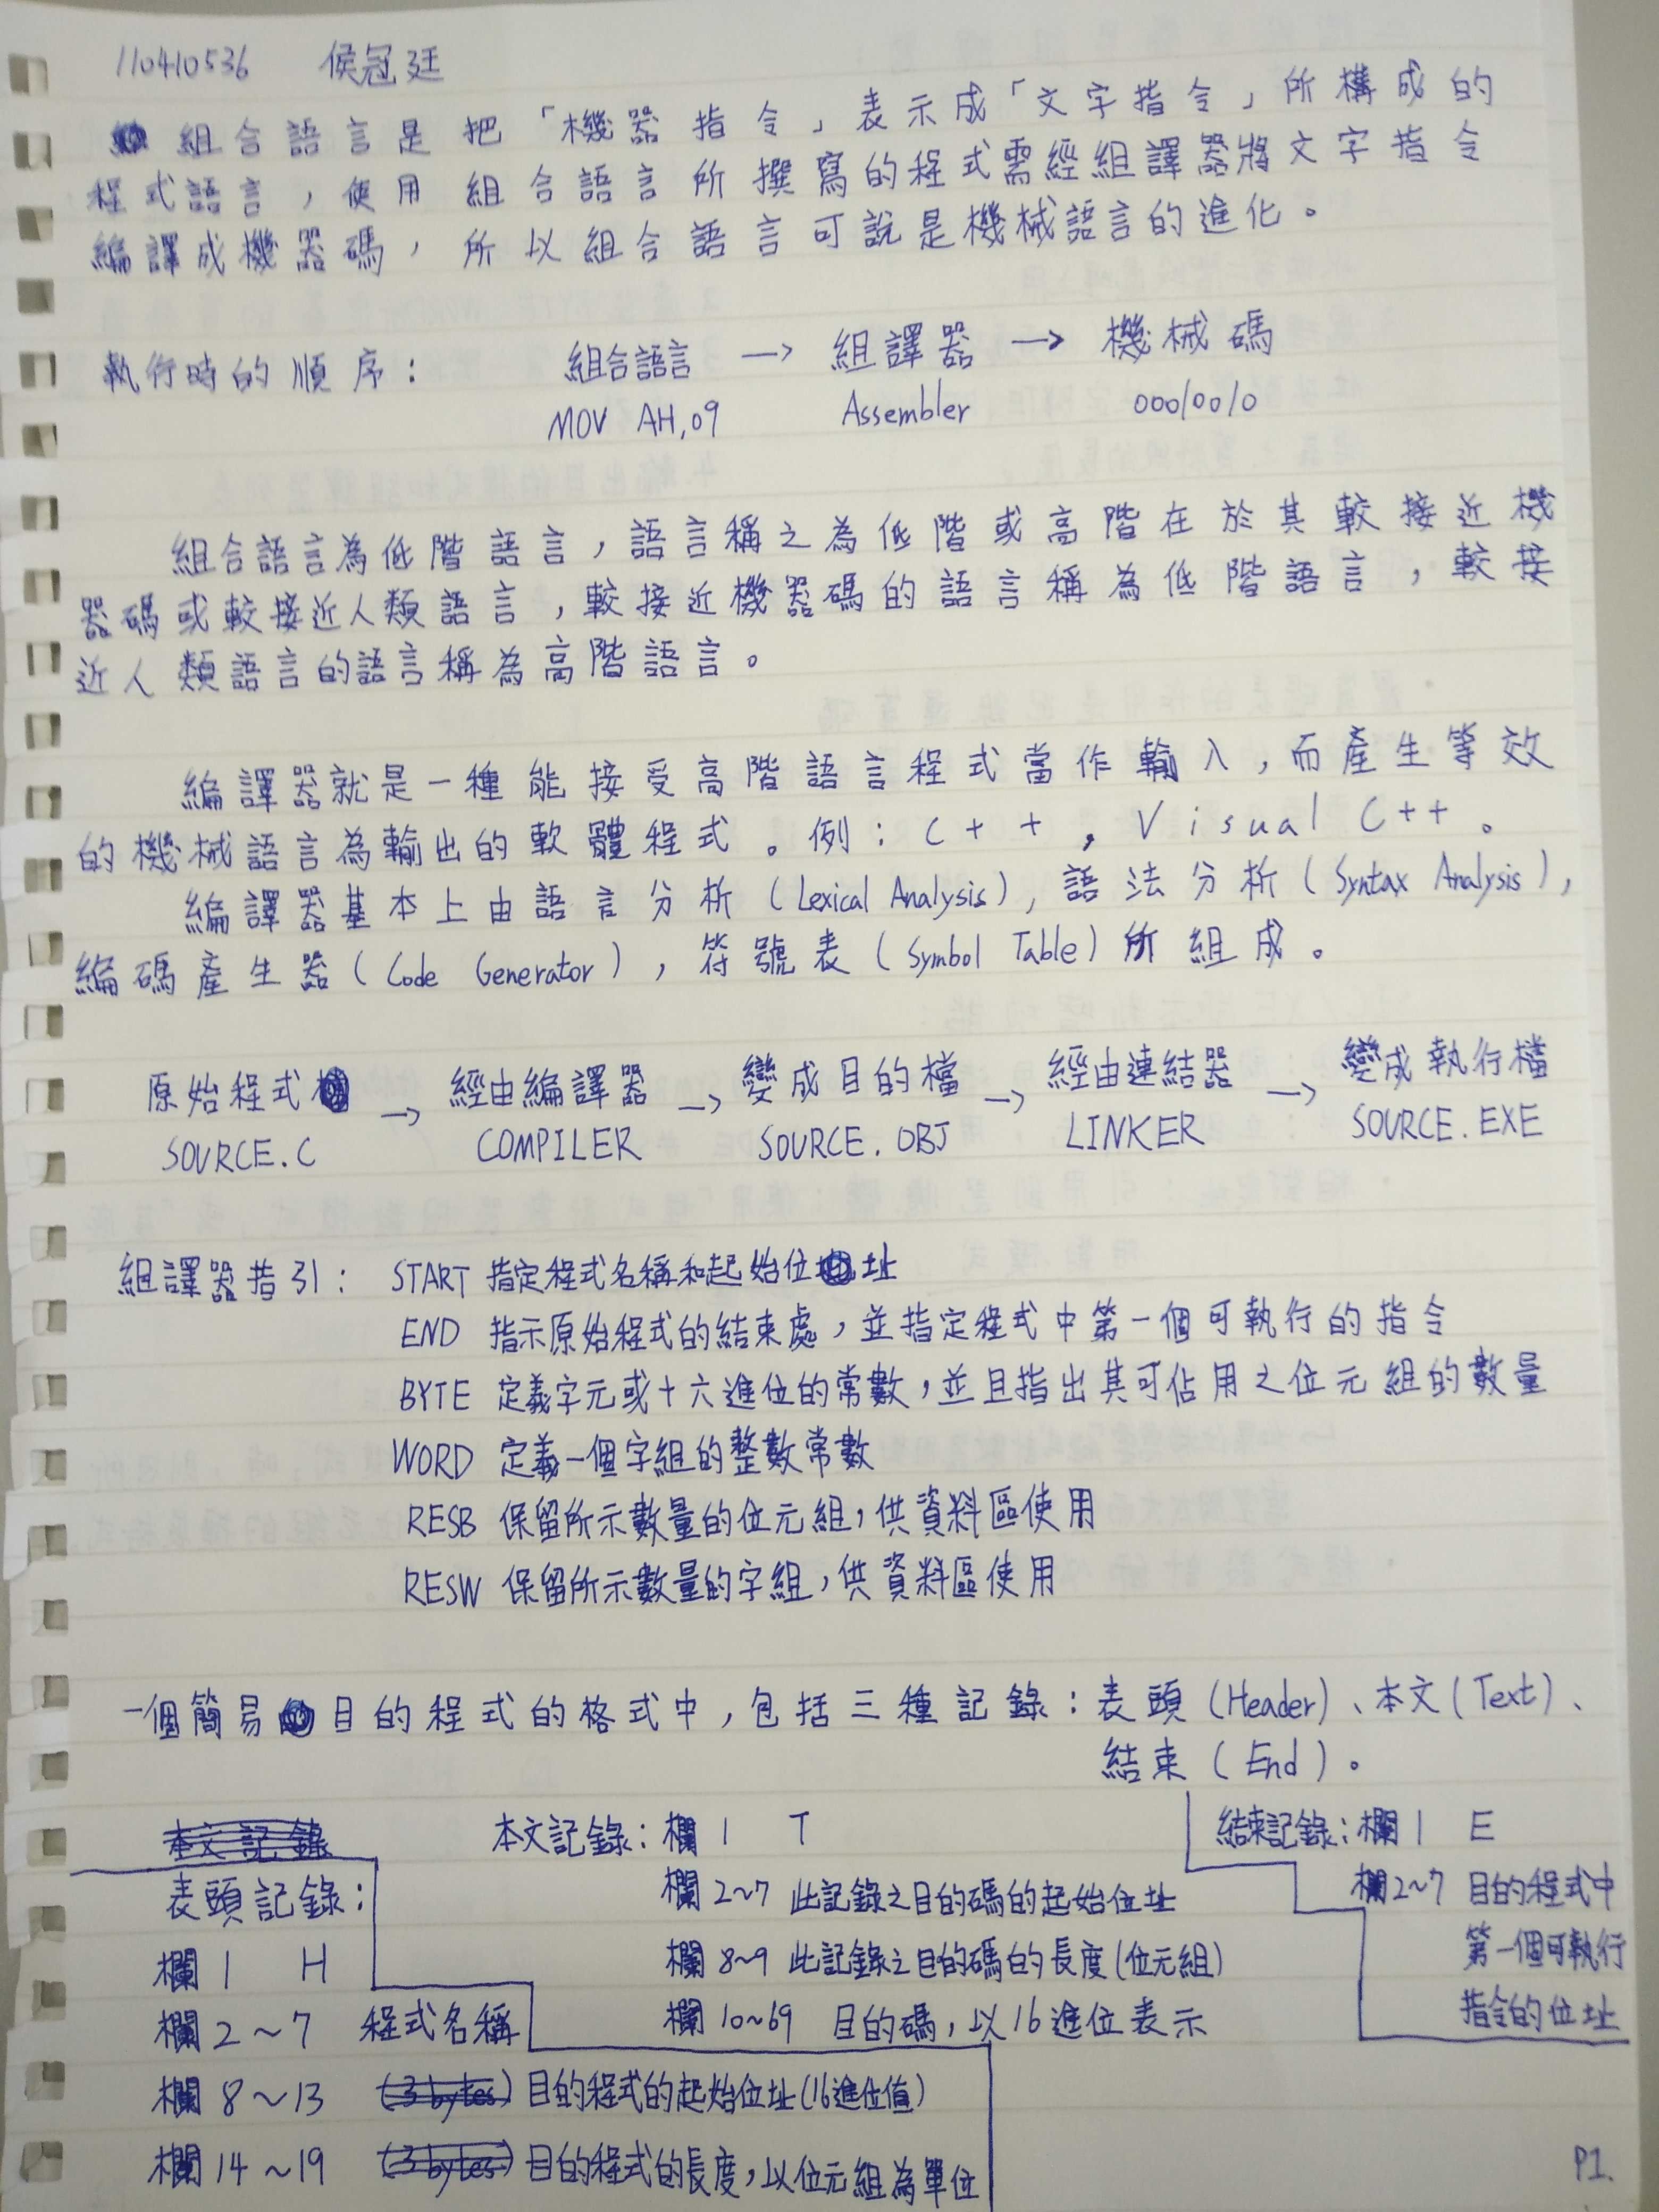 110410536 侯冠廷
組合語言是把「機器指令」表示成「文字指令」所構成的
程式語言，使用組合語言所撰寫的程式需經組譯器將文字指令
編譯成機器碼，所以組合語言可說是機械語言的進化。
執行時的順序： 組合語言 → 組譯器 → 機械碼
MOV AH,09 Assembler 00010010
組合語言為低階語言，語言稱之為低階或高階在於其較接近機
器碼或較接近人類語言，較接近機器碼的語言稱為低階語言，較接
近人類語言的語言稱為高階語言。
編譯器就是一種能接受高階語言程式當作輸入，而產生等效
的機械語言為輸出的軟體程式。例：C++，Visual C++。
編譯器基本上由語言分析（Lexical Analysis），語法分析（Syntax Analysis），
編碼產生器（Code Generator），符號表（Symbol Table）所組成。
原始程式 → 經由編譯器 → 變成目的檔 → 經由連結器 → 變成執行檔
SOURCE.C COMPILER SOURCE.OBJ LINKER SOURCE.EXE
組譯器指引： START 指定程式名稱和起始位址
END 指示原始程式的結束處，並指定程式中第一個可執行的指令
BYTE 定義字元或十六進位的常數，並且指出其可佔用之位元組的數量
WORD 定義一個字組的整數常數
RESB 保留所示數量的位元組，供資料區使用
RESW 保留所示數量的字組，供資料區使用
一個簡易目的程式的格式中，包括三種記錄：表頭（Header）、本文（Text）、
結束（End）。
本文記錄
表頭記錄：
欄 1 H
欄 2～7 程式名稱
欄 8～13 (3 bytes) 目的程式的起始位址(16進位值)
欄 14～19 (3 bytes) 目的程式的長度，以位元組為單位
本文記錄：欄 1 T
欄 2～7 此記錄之目的碼的起始位址
欄 8～9 此記錄之目的碼的長度(位元組)
欄 10～69 目的碼，以16進位表示
結束記錄：欄 1 E
欄 2～7 目的程式中
第一個可執行
指令的位址
P1.